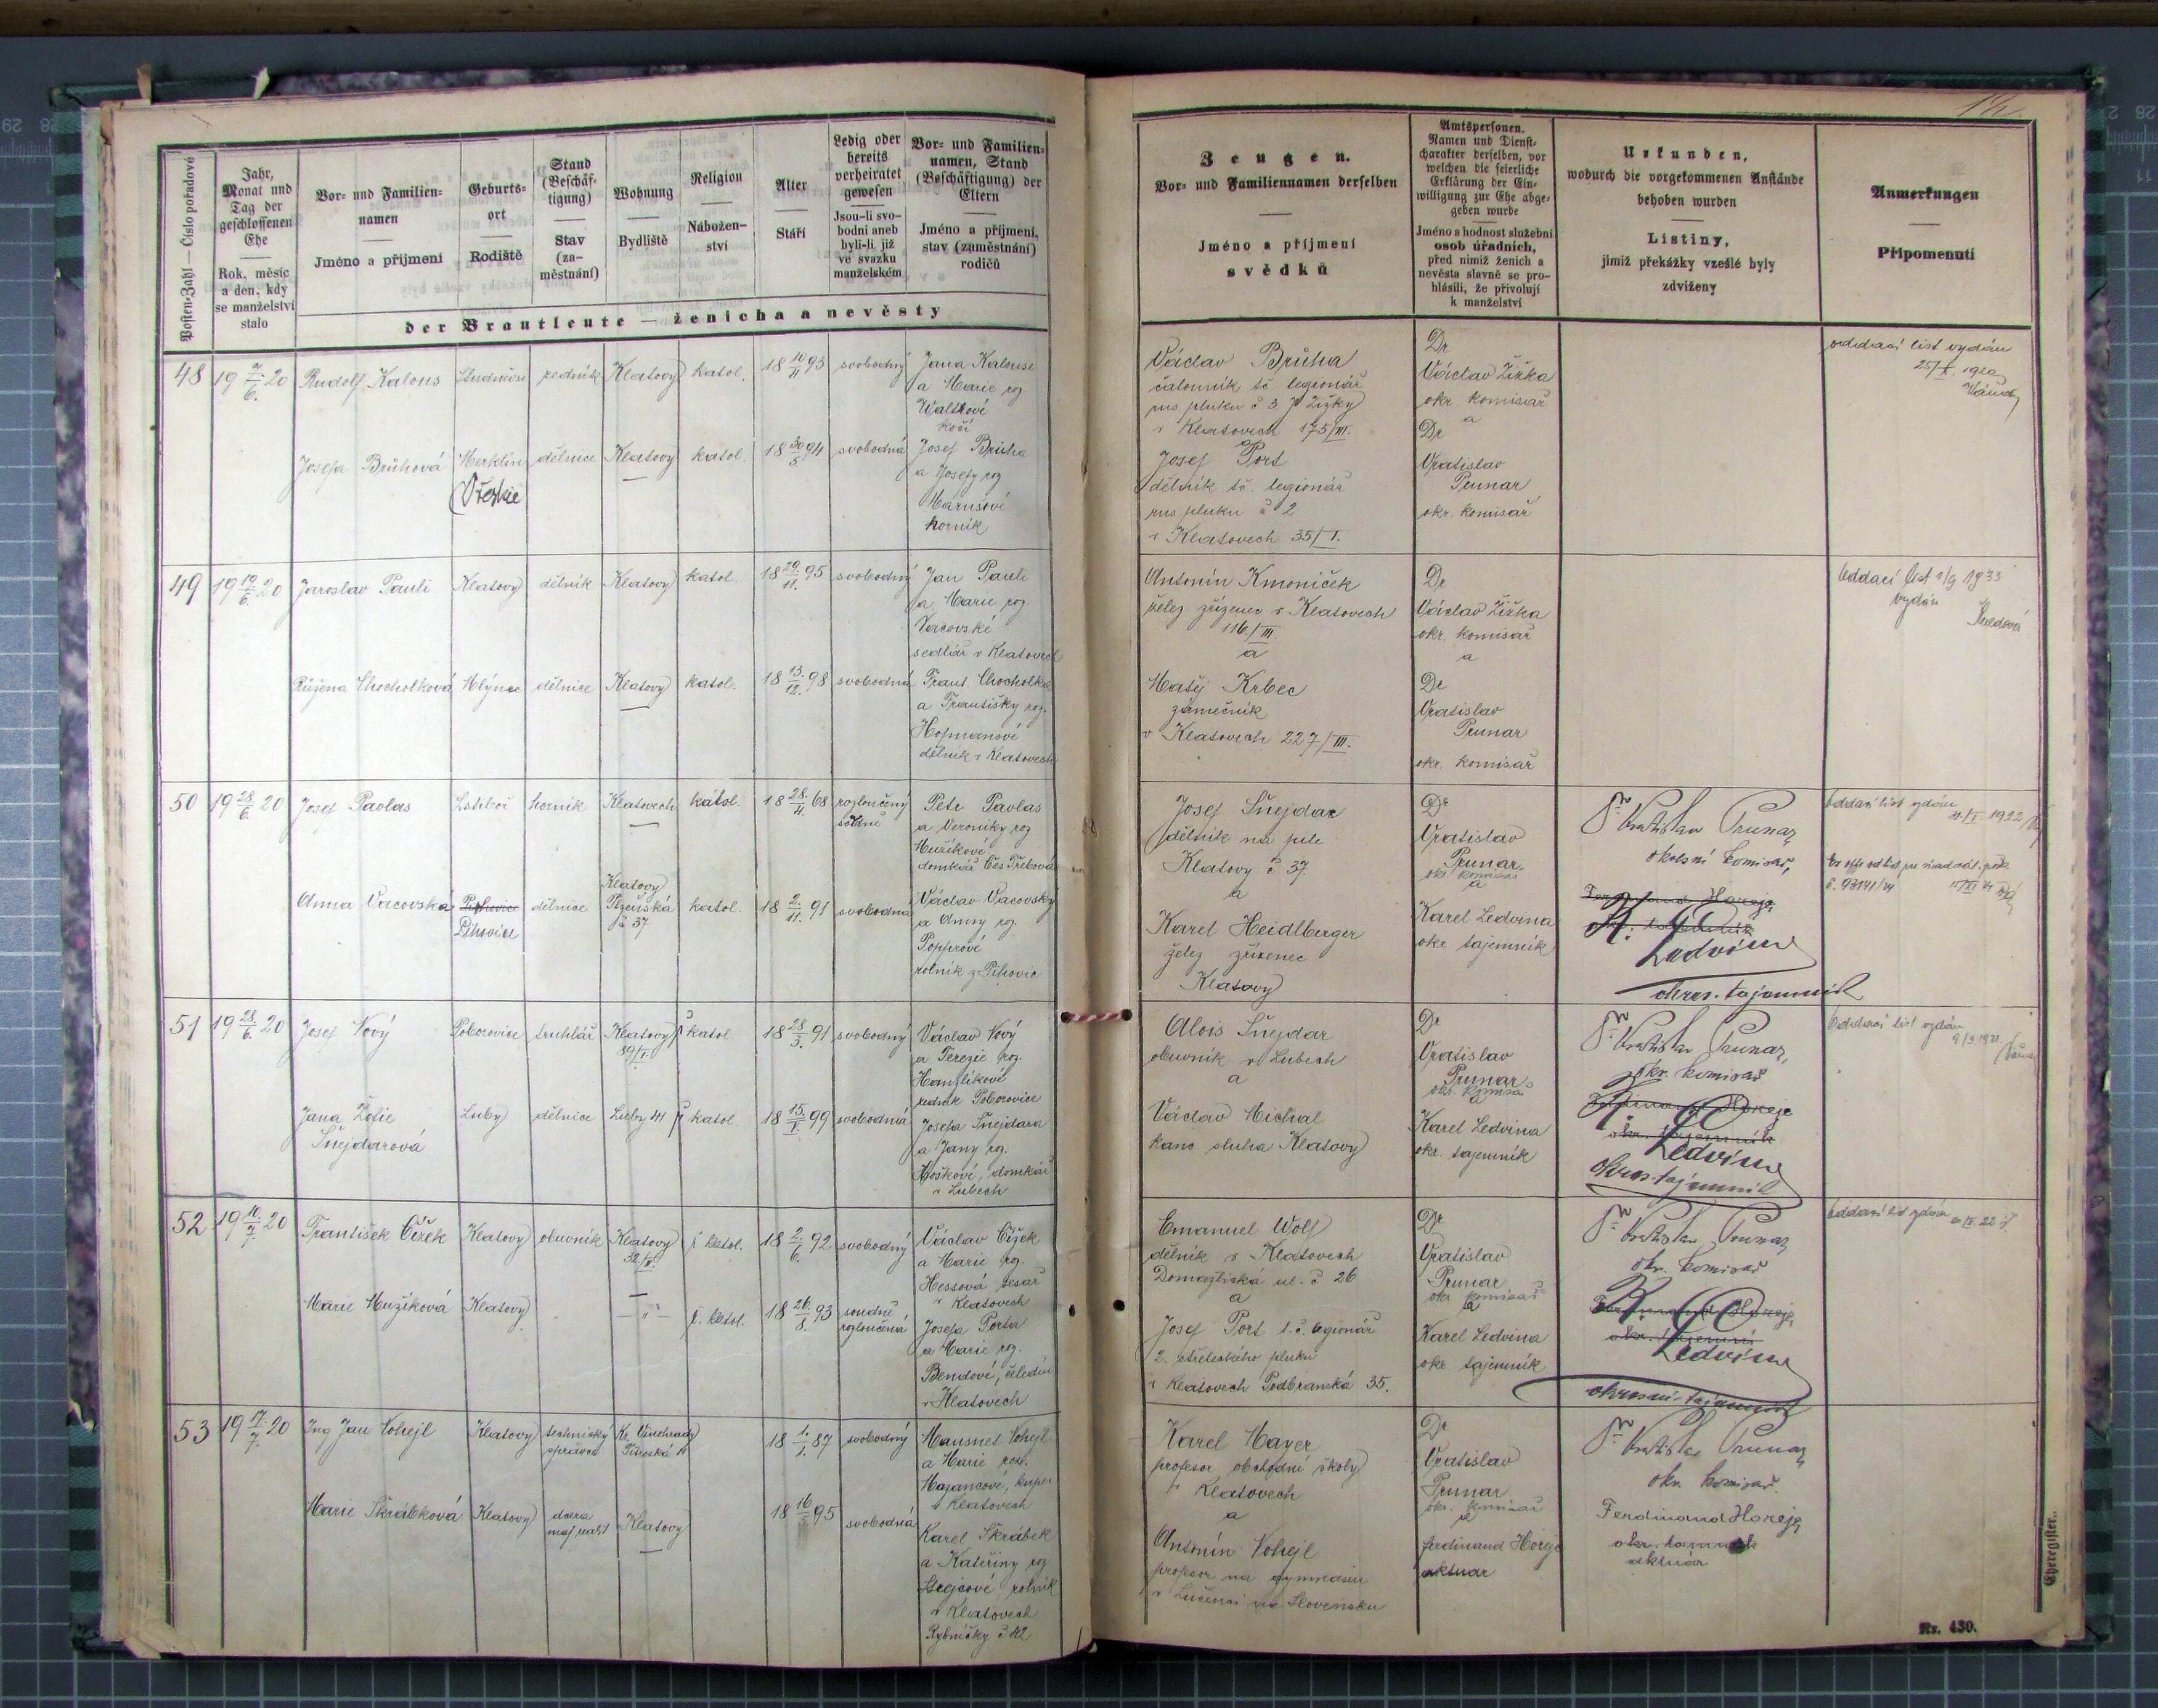 Posten-Zahl — Číslo pořadové
Jahr,
Monat und
Tag der
geschlossenen
Ehe
Rok, měsíc
a den, kdy
se manželství
stalo
Vor- und Familien-
namen
Jméno a příjmení
Geburts-
ort
Rodiště
Stand
(Beschäf-
tigung)
Stav
(za-
městnání)
Wohnung
Bydliště
Religion
Nábožen-
ství
Alter
Stáří
Ledig oder
bereits
verheiratet
gewesen
Jsou-li svo-
bodni aneb
byli-li již
ve svazku
manželském
Vor- und Familien-
namen, Stand
(Beschäftigung) der
Eltern
Jméno a příjmení,
stav (zaměstnání)
rodičů
der Brautleute — ženicha a nevěsty
48
19 7./6. 20
Rudolf Kalous
ředník
Klatovy
katol.
18 10/11 93
svobodný
Jana Kalouse
a Marie roz
kočí
Josefa Brůhová
Merklín
dělnice
Klatovy
katol.
18 30/5. 94
svobodná
Josef Brůha
a Josefy roz
Marušové
horník
49
19 19./6. 20
Jaroslav Pauli
Klatovy
dělník
Klatovy
katol.
18 29./11. 95
svobodný
Jan Pauli
a Marie roz.
Vacovské
sedlář v Klatovech
Růžena Chocholková
Hlýnec
dělnice
Klatovy
katol.
18 13./12. 98
svobodná
Frant. Chocholka
a Františky roz.
Hofmanové
dělník v Klatovech
50
19 28./6. 20
Josef Pavlas
Lstiboř
horník
Klatovech
katol.
18 28./4. 68
rozloučený
soudně
Petr Pavlas
a Veroniky roz
domkář Čes Třebová
Anna Vacovská
Pihovice
dělnice
Klatovy
Plzeňská
č 37
katol.
18 2./11. 91
svobodná
Václav Vacovský
a Anny rz.
Popprové
rolník z Pihovic
51
19 28/6. 20
Josef Nový
Poborovice
truhlář
Klatovy
89/I.
ř katol
18 28/3. 91
svobodný
Václav Nový
a Terezie roz.
Hanzlíkové
ředník Poborovice
Jana Žofie
Šnejdarová
Luby
dělnice
Luby 41
ř katol
18 15./I. 99
svobodná
Josefa Šnejdara
a Jany rz.
Hoškové, domkář
v Lubech
52
19 10./7. 20
František Čížek
Klatovy
obuvník
Klatovy
ř katol.
18 2./6. 92
svobodný
Václav Čížek
a Marie rz.
Hessová tesař
v Klatovech
Marie Mužíková
Klatovy
— " —
ř. katol.
18 26./8. 93
soudně
rozloučená
Josefa Porta
a Marie rz.
Bendové, čeledín
v Klatovech
53
19 17/7. 20
Ing Jan Vohejl
Klatovy
technický
správce
Kr. Vinohrady
18 1./1. 87
svobodný
Vohejl
a Marie roz.
Mazancové, kupec
v Klatovech
Marie Škrábková
Klatovy
dcera
Klatovy
18 16/5 95
svobodná
Karel Škrábek
a Kateřiny rz
rolník
v Klatovech
Rybníčky č 42
Zeugen.
Vor- und Familiennamen derselben
Jméno a příjmení
svědků
Amtspersonen.
Namen und Dienst-
charakter derselben, vor
welchen die feierliche
Erklärung der Ein-
willigung zur Ehe abge-
geben wurde
Jméno a hodnost služební
osob úřadních,
před nimiž ženich a
nevěsta slavně se pro-
hlásili, že přivolují
k manželství
Urkunden,
wodurch die vorgekommenen Anstände
behoben wurden
Listiny,
jimiž překážky vzešlé byly
zdviženy
Anmerkungen
Připomenutí
Václav Brůha
čalouník tč. legionář
rus. pluku č 3 J Žižky
v Klatovech 175/III.
Josef Port
dělník tč. legionář
rus pluku č 2
v Klatovech 35/I.
Dr
Václav Žižka
okr. komisař
a
Dr
Vratislav
Prunar
okr. komisař
oddací list vydán
25/X. 1920
Antonín Kmoníček
želez. zřízenec v Klatovech
116/III.
a
Matěj Krbec
zámečník
v Klatovech 227/III.
Dr
Václav Žižka
okr. komisař
a
Dr
Vratislav
Prunar
okr. komisař
Oddací list 1/9 1933
vydán
Josef Šnejdar
dělník na pile
Klatovy č 37
a
Karel Heidlberger
želez zřízenec
Klatovy
Dr
Vratislav
Prunar
okr komisař
a
Karel Ledvina
okr tajemník
Dr Vratislav Prunar
okresní komisař,
Ferdinand Horejc
K. Ledvina
okres. tajemník
Oddací list vydán
1922
Alois Šnejdar
obuvník v Lubech
a
Václav Michal
kanc sluha Klatovy
Dr
Vratislav
Prunar
okr. komisař
a
Karel Ledvina
okr. tajemník
Dr Vratislav Prunar,
okr. komisař
Ferdinand Horejc
okr. tajemník
K. Ledvina
okres. tajemník
Oddací list vydán
9/3 1921
Emanuel Wolf
dělník v Klatovech
Domažlická ul. č 26
a
Josef Port t. č. legionář
2. střeleckého pluku
v Klatovech Podbranská 35.
Dr
Vratislav
Prunar
okr komisař
a
Karel Ledvina
okr tajemník
Dr Vratislav Prunar
okr. komisař
Ferdinand Horejc
okr. tajemník
K. Ledvina
okresní tajemník
Oddací list vydán
Karel Mayer
profesor obchodní školy
v Klatovech
a
Antonín Vohejl
profesor na gymnasiu
v Lučenci na Slovensku
Dr
Vratislav
Prunar
okr. komisař
a
Ferdinand Horejc
aktuar
Dr Vratislav Prunar
okr. komisař.
Ferdinand Horejc
aktuár
Eheregister.
Nr. 430.